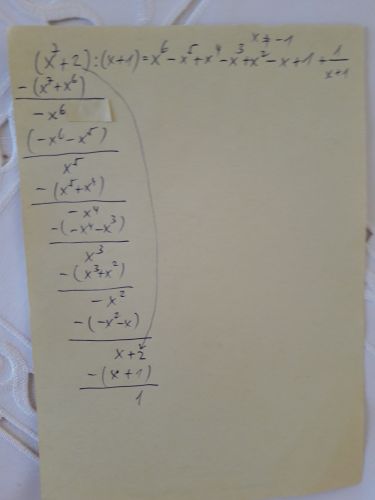 x ≠ -1
(x⁷+2):(x+1)=x⁶-x⁵+x⁴-x³+x²-x+1+1/(x+1)
-(x⁷+x⁶)
-x⁶
(-x⁶-x⁵)
x⁵
-(x⁵+x⁴)
-x⁴
-(-x⁴-x³)
x³
-(x³+x²)
-x²
-(-x²-x)
x+2
-(x+1)
1